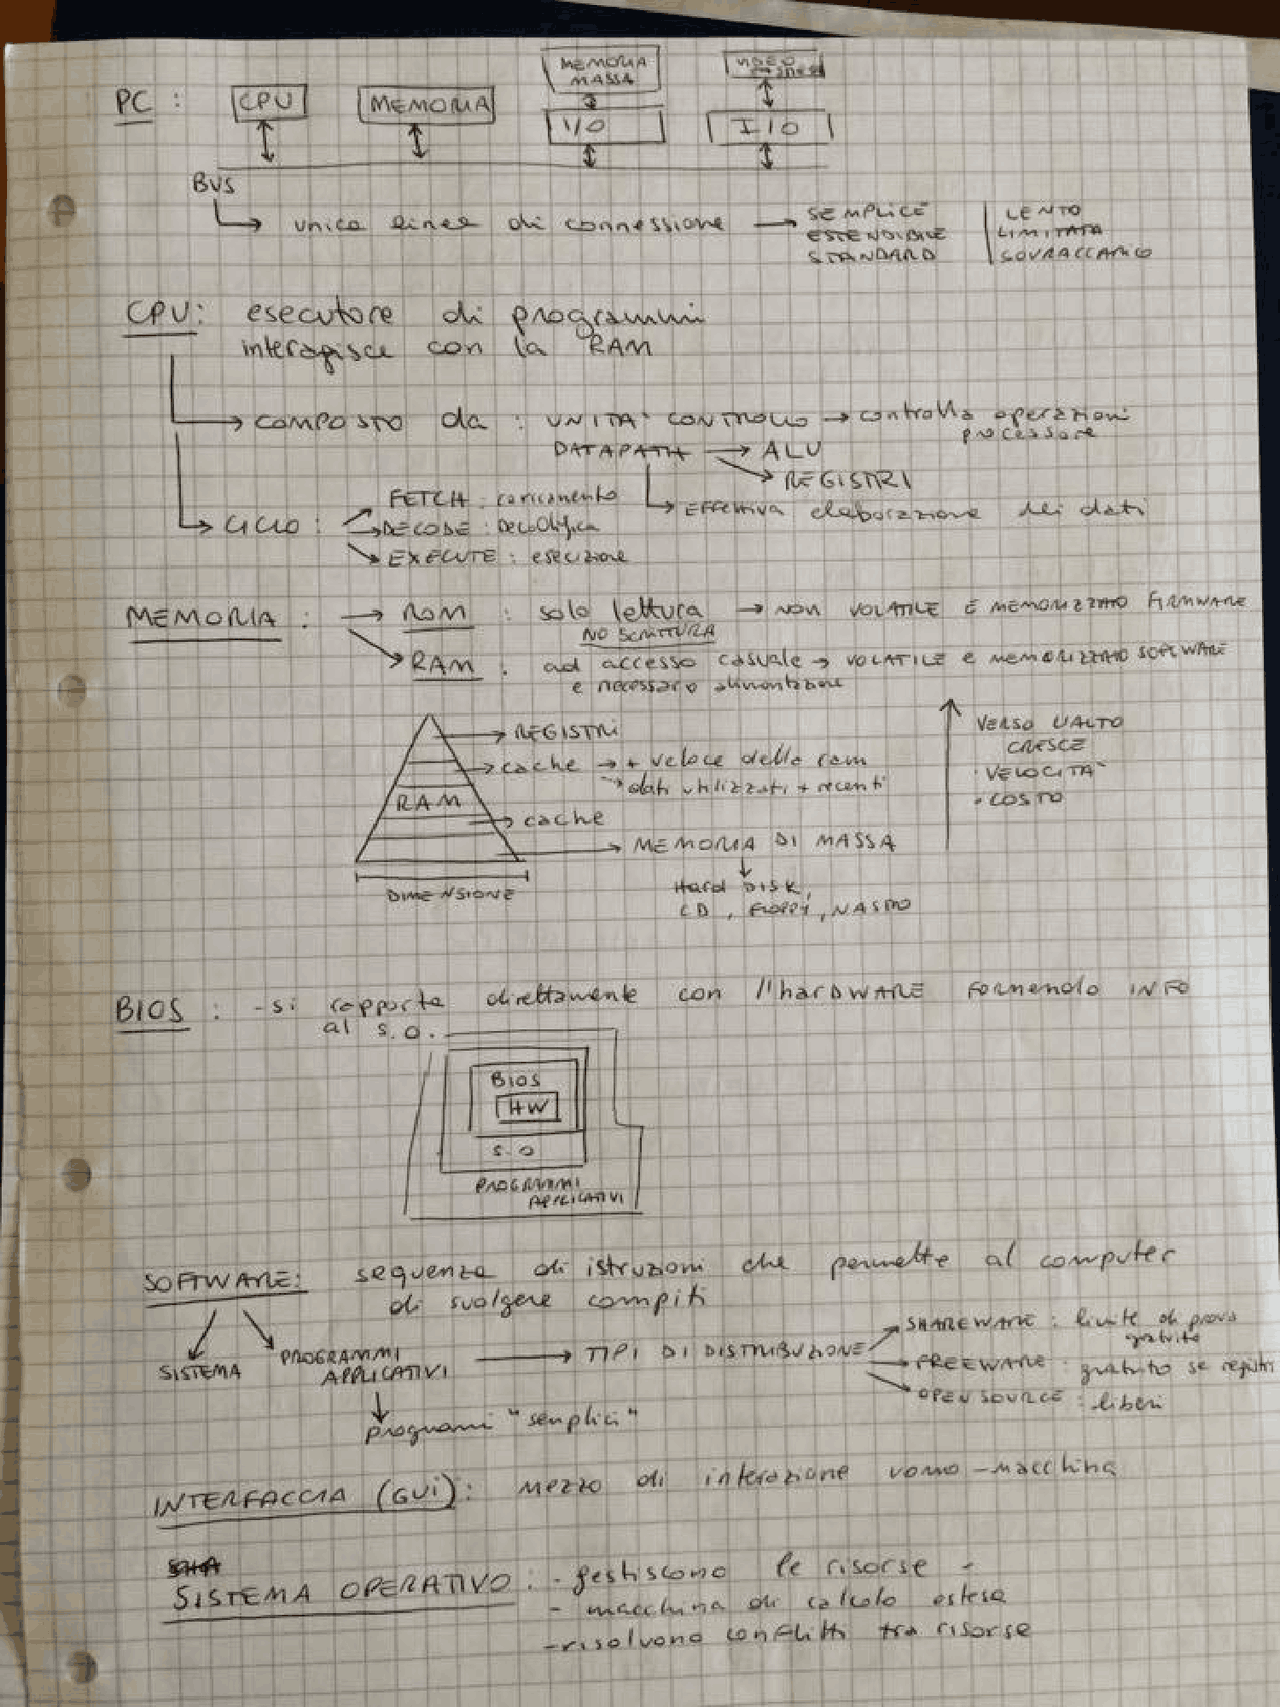 PC : CPU MEMORIA MEMORIA MASSA VIDEO
I/O I/O
BUS
unica linea di connessione → SEMPLICE | LENTO
ESTENDIBILE | LIMITATA
STANDARD | SOVRACCARICO
CPU: esecutore di programmi
interagisce con la RAM
→ COMPOSTO da : UNITA' CONTROLLO → controlla operazioni
processore
DATAPATH → ALU
→ REGISTRI
→ EFFETTIVA elaborazione dei dati
→ CICLO : FETCH : caricamento
DECODE : DECODIfica
EXECUTE : esecuzione
MEMORIA : → ROM : solo lettura → NON VOLATILE E MEMORIZZATO FIRMWARE
NO SCRITTURA
→ RAM : ad accesso casuale → VOLATILE e MEMORIZZATO SOFTWARE
e necessaro alimentazione
→ REGISTRI
→ cache → + veloce della ram
→ dati utilizzati + recenti
RAM
→ cache
→ MEMORIA DI MASSA
↓
Hard DISK,
CD, FLOPPY, NASTRO
DIMENSIONE
VERSO L'ALTO
CRESCE
· VELOCITA'
· COSTO
BIOS : - si rapporta direttamente con l'harDWARE fornendo INFO
al S.O.
BIOS
HW
S.O
PROGRAMMI
APPLICATIVI
SOFTWARE: sequenza di istruzioni che permette al computer
di svolgere compiti
SISTEMA
PROGRAMMI
APPLICATIVI → TIPI DI DISTRIBUZIONE
SHAREWARE : limite di prova
gratuito
FREEWARE : gratuito se registri
OPEN SOURCE : liberi
programmi "semplici"
INTERFACCIA (GUI): mezzo di interazione uomo-macchina
SISTEMA OPERATIVO : - gestiscono le risorse -
- macchina di calcolo estesa
- risolvono conflitti tra risorse